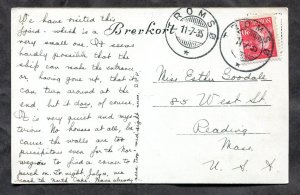 We have visited this
fjord - which is a
very small one. It seems
hardly possible that the
ship can make the entrance
or, having gone up, that it
can turn around at the
end but it does, of course.
It is very quiet and mys-
terious. No houses at all, be-
cause the walls are too
precipitous even for the Nor-
wegian to find a corner to
perch on. To night July 10, we
reach the North Cape.
Brevkort
TROMSØ
11-7-35
Miss Esther Goodale
83 West St
Reading
Mass.
U. S. A